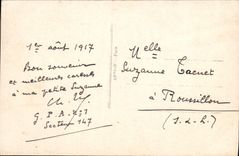 1er août 1917
Bon souvenir
et meilleures caresses
à ma petite Suzanne
G.P.A.
Secteur 147
Melle
Suzanne
à Roussillon
(S.-&-L.)